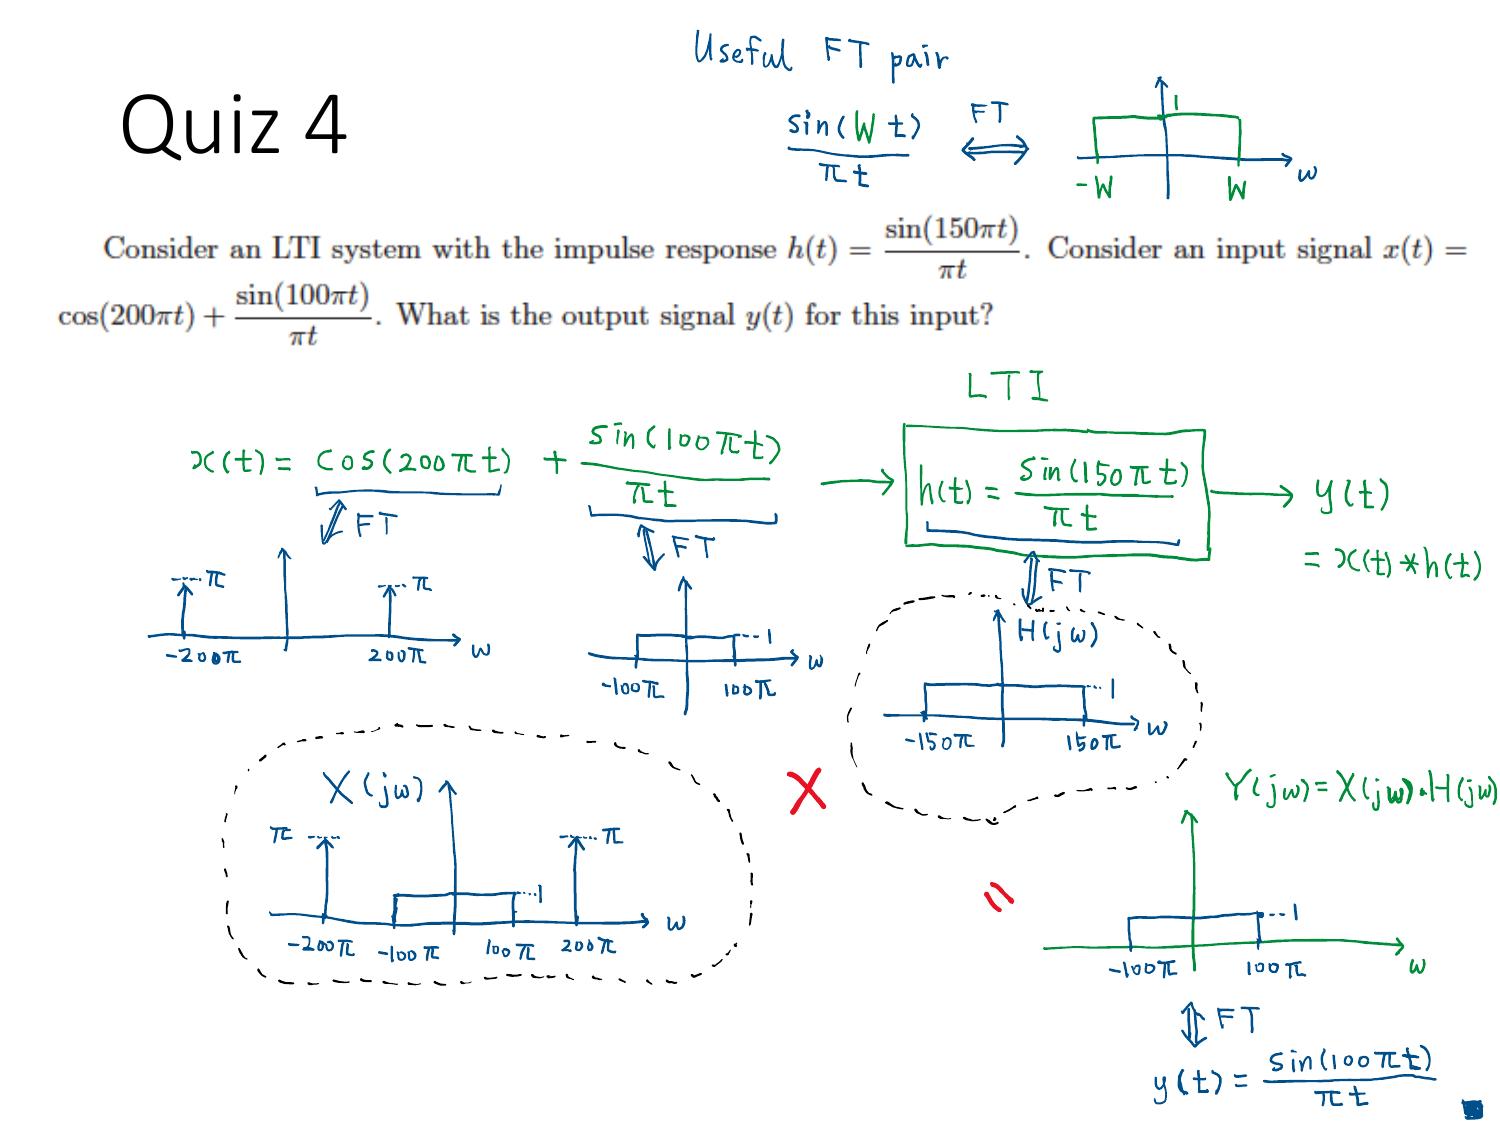 Useful FT pair
Quiz 4
sin(Wt)/πt FT 1 -W W ω
Consider an LTI system with the impulse response h(t) = sin(150πt)/πt. Consider an input signal x(t) =
cos(200πt) + sin(100πt)/πt. What is the output signal y(t) for this input?
LTI
x(t) = cos(200πt) + sin(100πt)/πt → h(t) = sin(150πt)/πt → y(t)
= x(t) * h(t)
FT
FT
FT
π π
-200π 200π ω
1
-100π 100π ω
H(jω)
1
-150π 150π ω
X(jω)
π 1 π
-200π -100π 100π 200π ω
X
=
Y(jω) = X(jω)·H(jω)
1
-100π 100π ω
FT
y(t) = sin(100πt)/πt